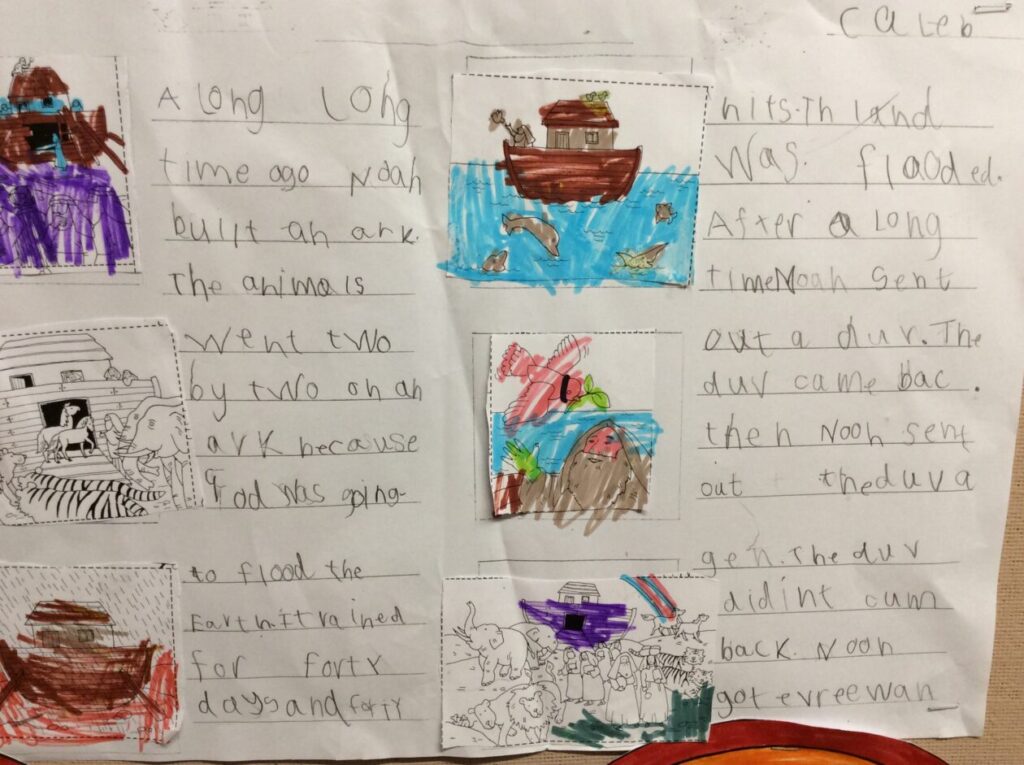 Caleb
A Long Long
time ago Noah
built an ark.
The animals
went two
by two on an
ark because
God was going
to flood the
Earth.It rained
for forty
days and forty
nits.Th land
was. flooded.
After a Long
timeNoah sent
out a duv. The
duv came bac.
then Nooh sent
out theduva
gen.The duv
didint cum
back. Nooh
got evreewan